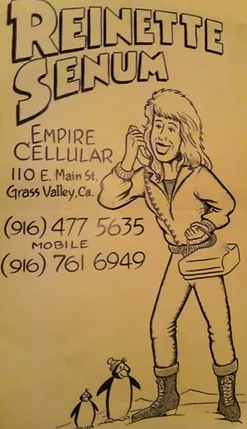 REINETTE
SENUM
EMPIRE
CELLULAR
110 E. Main St.
Grass Valley, Ca.
(916) 477 5635
MOBILE
(916) 761 6949